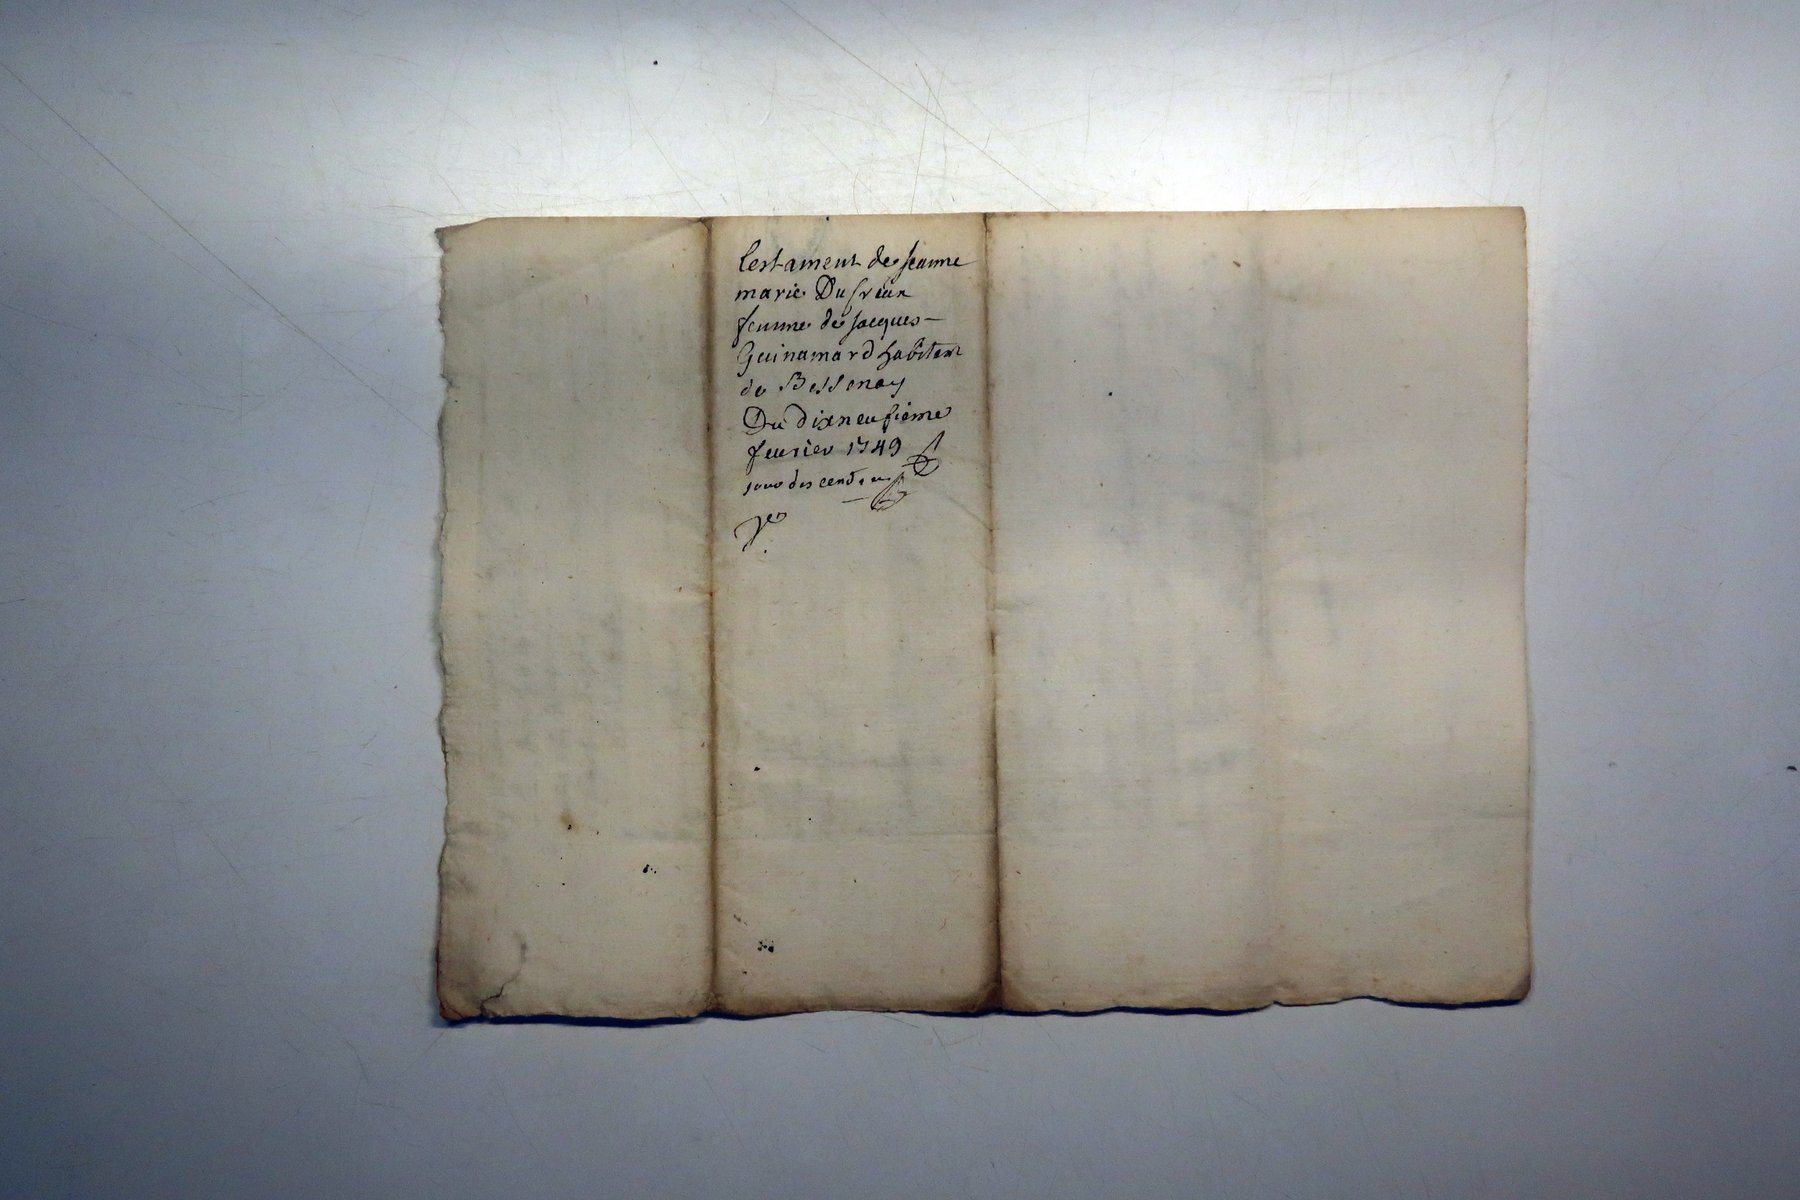 testament de jeanne
marie Dufreine
femme de jacques
Guinamard habitan
de Bessenay
Du dixneufieme
feurier 1749